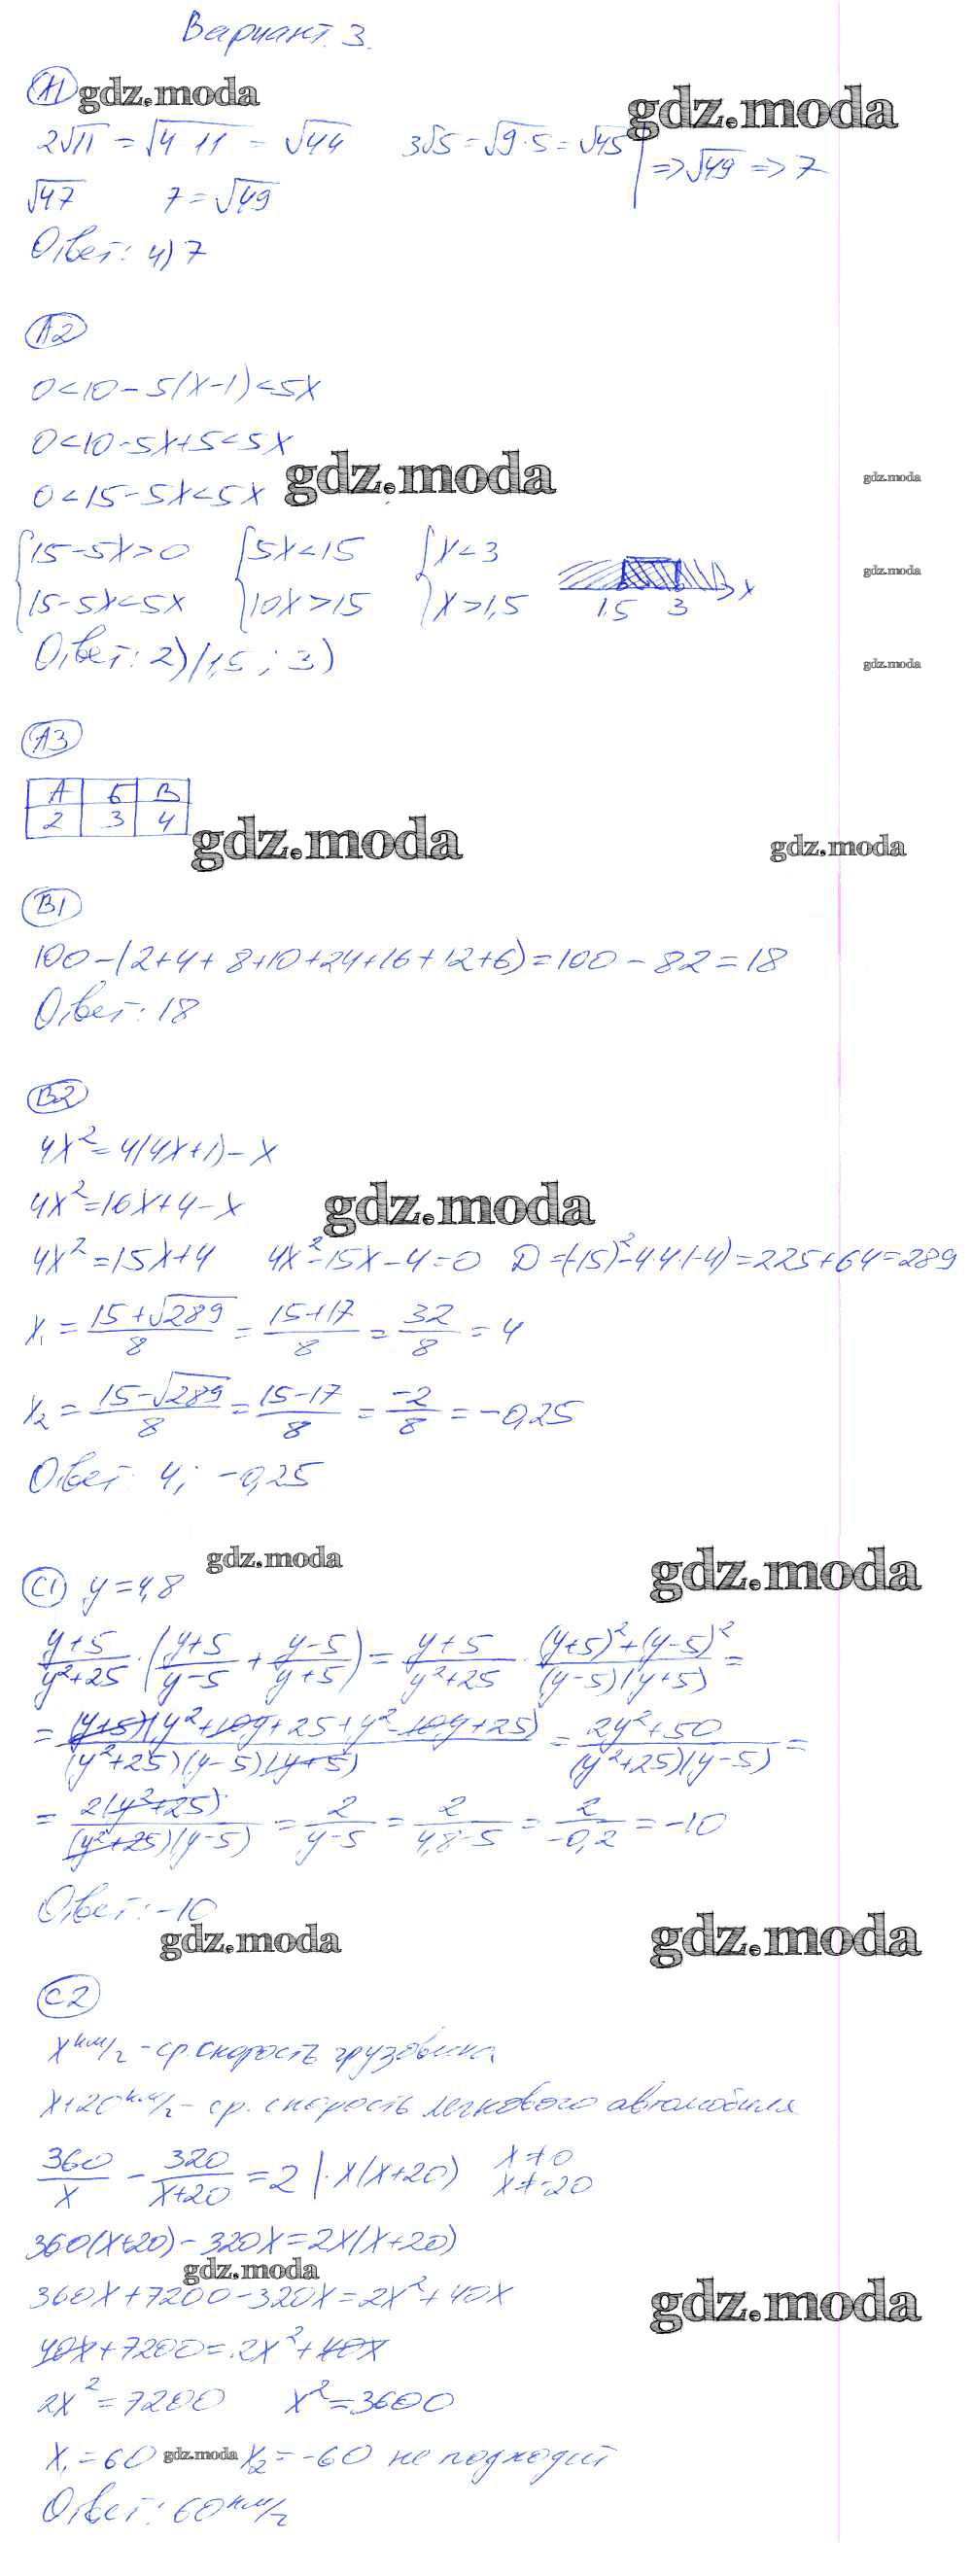 Вариант 3.
А1 gdz.moda
gdz.moda
2√11 = √4·11 = √44 3√5 = √9·5 = √45 => √49 => 7
√47 7 = √49
Ответ: 4) 7
А2
0<10-5(x-1)<5x
0<10-5x+5<5x
0<15-5x<5x gdz.moda gdz.moda
{15-5x>0 {5x<15 {x<3 gdz.moda
{15-5x<5x {10x>15 {x>1,5 1,5 3 x
Ответ: 2) (1,5; 3) gdz.moda
А3
А Б В
2 3 4
gdz.moda gdz.moda
В1
100-(2+4+8+10+24+16+12+6)=100-82=18
Ответ: 18
В2
4x²=4(4x+1)-x
4x²=16x+4-x gdz.moda
4x²=15x+4 4x²-15x-4=0 D=(-15)²-4·4·(-4)=225+64=289
x₁ = (15+√289)/8 = (15+17)/8 = 32/8 = 4
x₂ = (15-√289)/8 = (15-17)/8 = -2/8 = -0,25
Ответ: 4; -0,25
gdz.moda gdz.moda
С1 y=4,8
(y+5)/(y²+25)·((y+5)/(y-5) + (y-5)/(y+5)) = (y+5)/(y²+25)·((y+5)²+(y-5)²)/((y-5)(y+5)) =
= (y+5)(y²+10y+25+y²-10y+25)/((y²+25)(y-5)(y+5)) = (2y²+50)/((y²+25)(y-5)) =
= 2(y²+25)/((y²+25)(y-5)) = 2/(y-5) = 2/(4,8-5) = 2/(-0,2) = -10
Ответ: -10
gdz.moda gdz.moda
С2
x км/ч - ср. скорость грузовика
x+20 км/ч - ср. скорость легкового автомобиля
360/x - 320/(x+20) = 2 |·x(x+20) x≠0
x≠-20
360(x+20)-320x=2x(x+20)
gdz.moda
360x+7200-320x=2x²+40x gdz.moda
40x+7200=2x²+40x
2x²=7200 x²=3600
x₁=60 gdz.moda x₂=-60 не подходит
Ответ: 60 км/ч